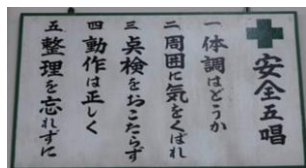 安全五唱
一 体調はどうか
二 周囲に気をくばれ
三 点検をおこたらず
四 動作は正しく
五 整理を忘れずに